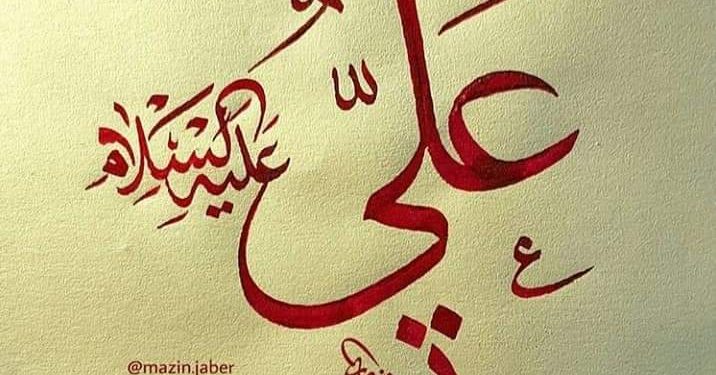 عَلِيٌّ
عَلَيْهِ السَّلَامُ
ع
@mazin.jaber